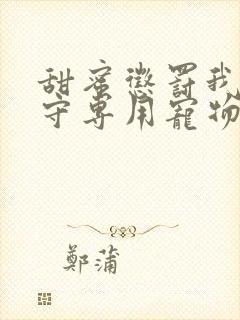 甜蜜懲罰我
守專用寵物
鄭蒲